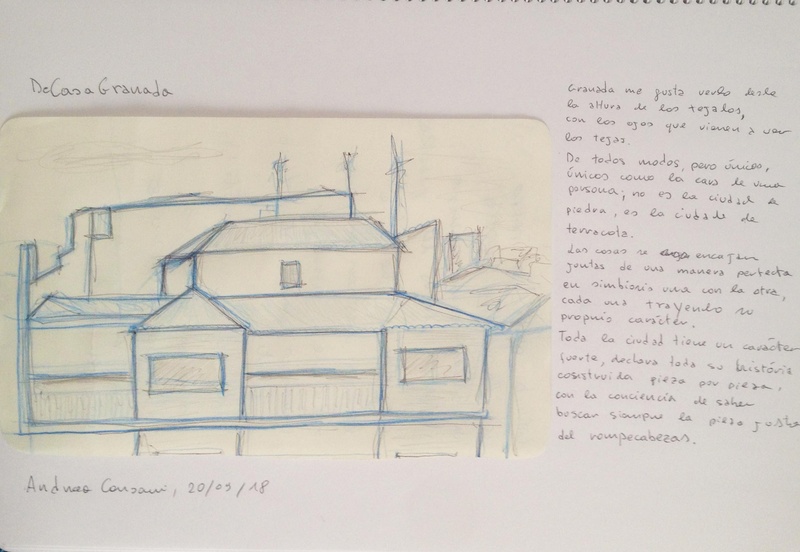 DeCasaGranada
Granada me gusta verla desde
la altura de los tejados,
con los ojos que vienen a ver
los tejas.
De todos modos, pero únicos,
únicos como la cara de una
persona; no es la ciudad de
piedra, es la ciudade de
terracota.
Las casas se encajan
juntas de una manera perfecta
en simbiosis una con la otra,
cada una trayendo su
propio carácter.
Toda la ciudad tiene un carácter
fuerte, declara toda su história
costruida pieza por pieza,
con la conciencia de saber
buscar siempre la pieza justa
del rompecabezas.
Andrea 20/09/18